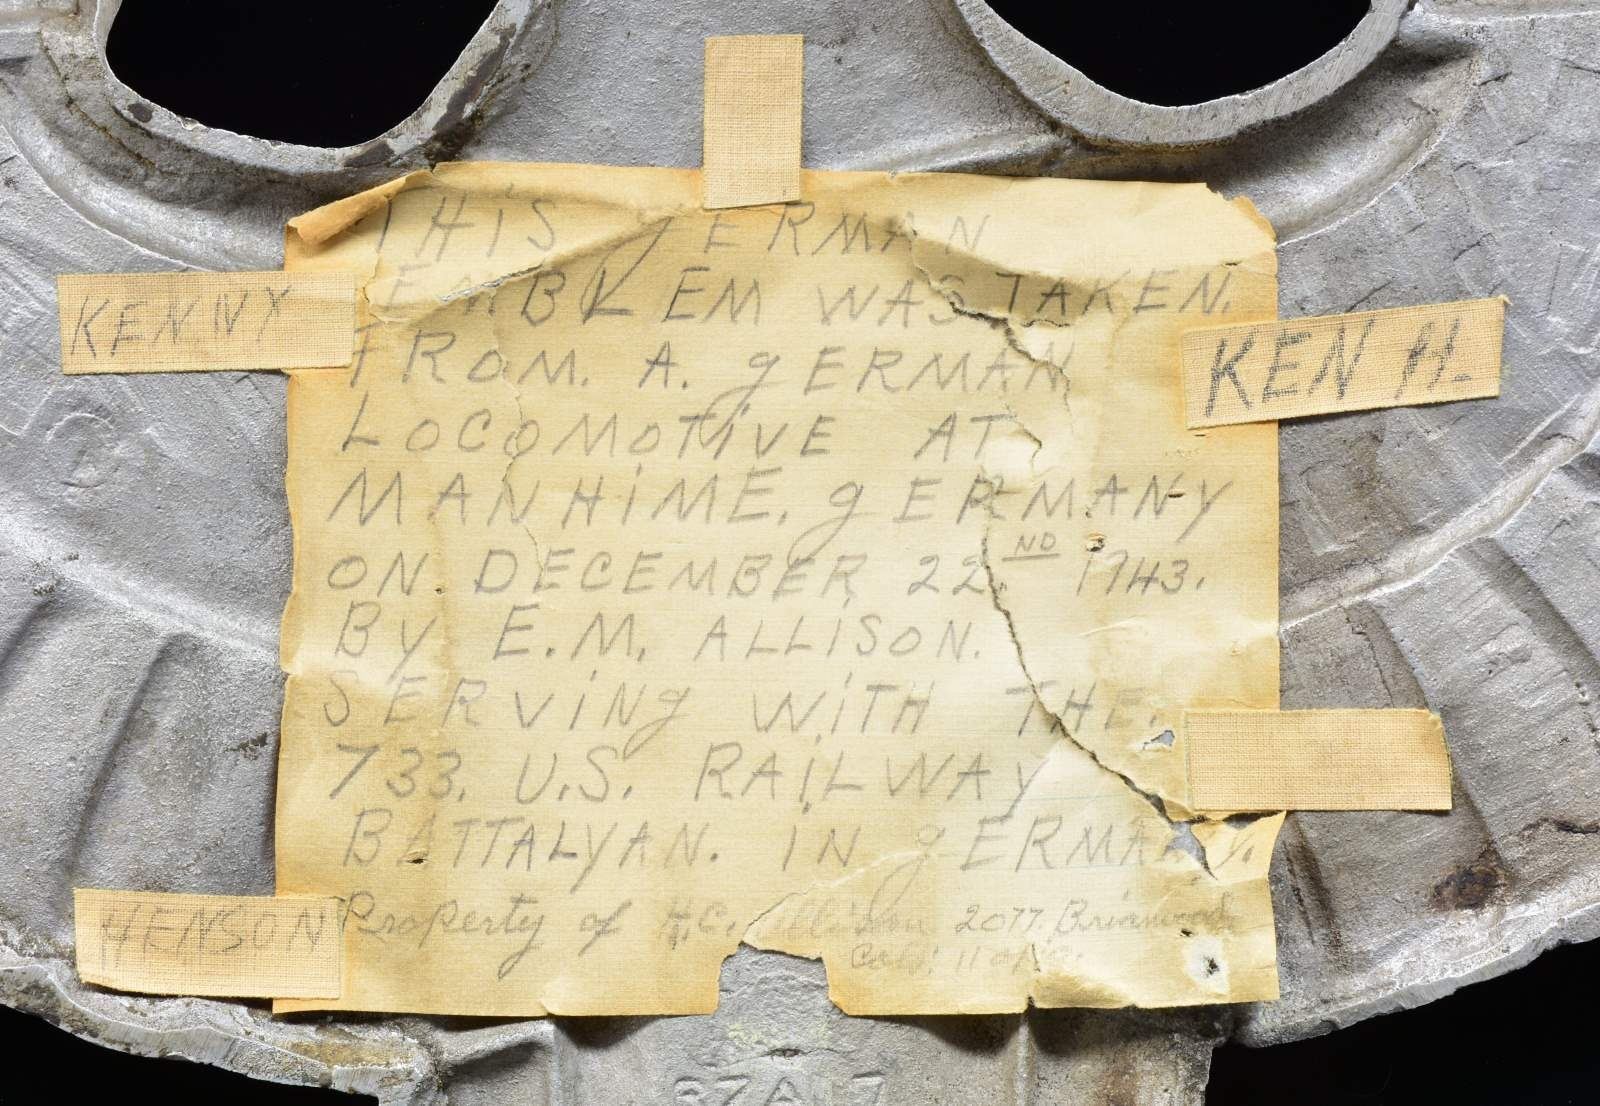 THiS gERMAN
EMBLEM WAS TAKEN.
KENNY
FROM. A. gERMAN
KEN H.
LOCOMOTiVE AT
MANHiME. gERMANY
ON DECEMBER 22.ND 1943.
By E.M. ALLiSON.
SERViNg WiTH THE.
733. U.S. RAiLWAY
BATTALYAN. IN gERMANY.
HENSON
Property of H.C. Allison 2077.